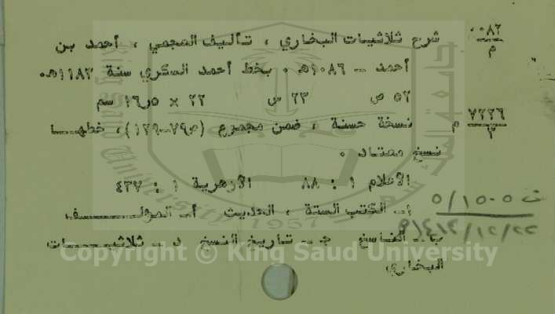 ٠٠٨٢ شرح ثلاثيات البخاري ، تأليف العجمي ، أحمد بن
م أحمد ــ ١٠٨٦هـ ٠ بخط أحمد السكري سنة ١١٨٢هـ٠
٥٢ ص ٢٣ س ٢٢ × ١٦٫٥ سم
٧٢٢٦ م نسخة حسنة ، ضمن مجموع (ص٧٩-١٢٩)، خطهــا
٣ نسخ معتاد ٠
الأعلام ١ : ٨٨ الأزهرية ١ : ٤٣٧
أ‌ـ الكتب الستة ، الحديث أ‌ـ المؤلــــــــف
ت ١٥٠٥/٥
ب‌ـ الناسخ ج‌ـ تاريخ النسخ د‌ـ ثلاثيـــــات
١٤١٢/١٢/٢٢
البخاري
Copyright © King Saud University
1957